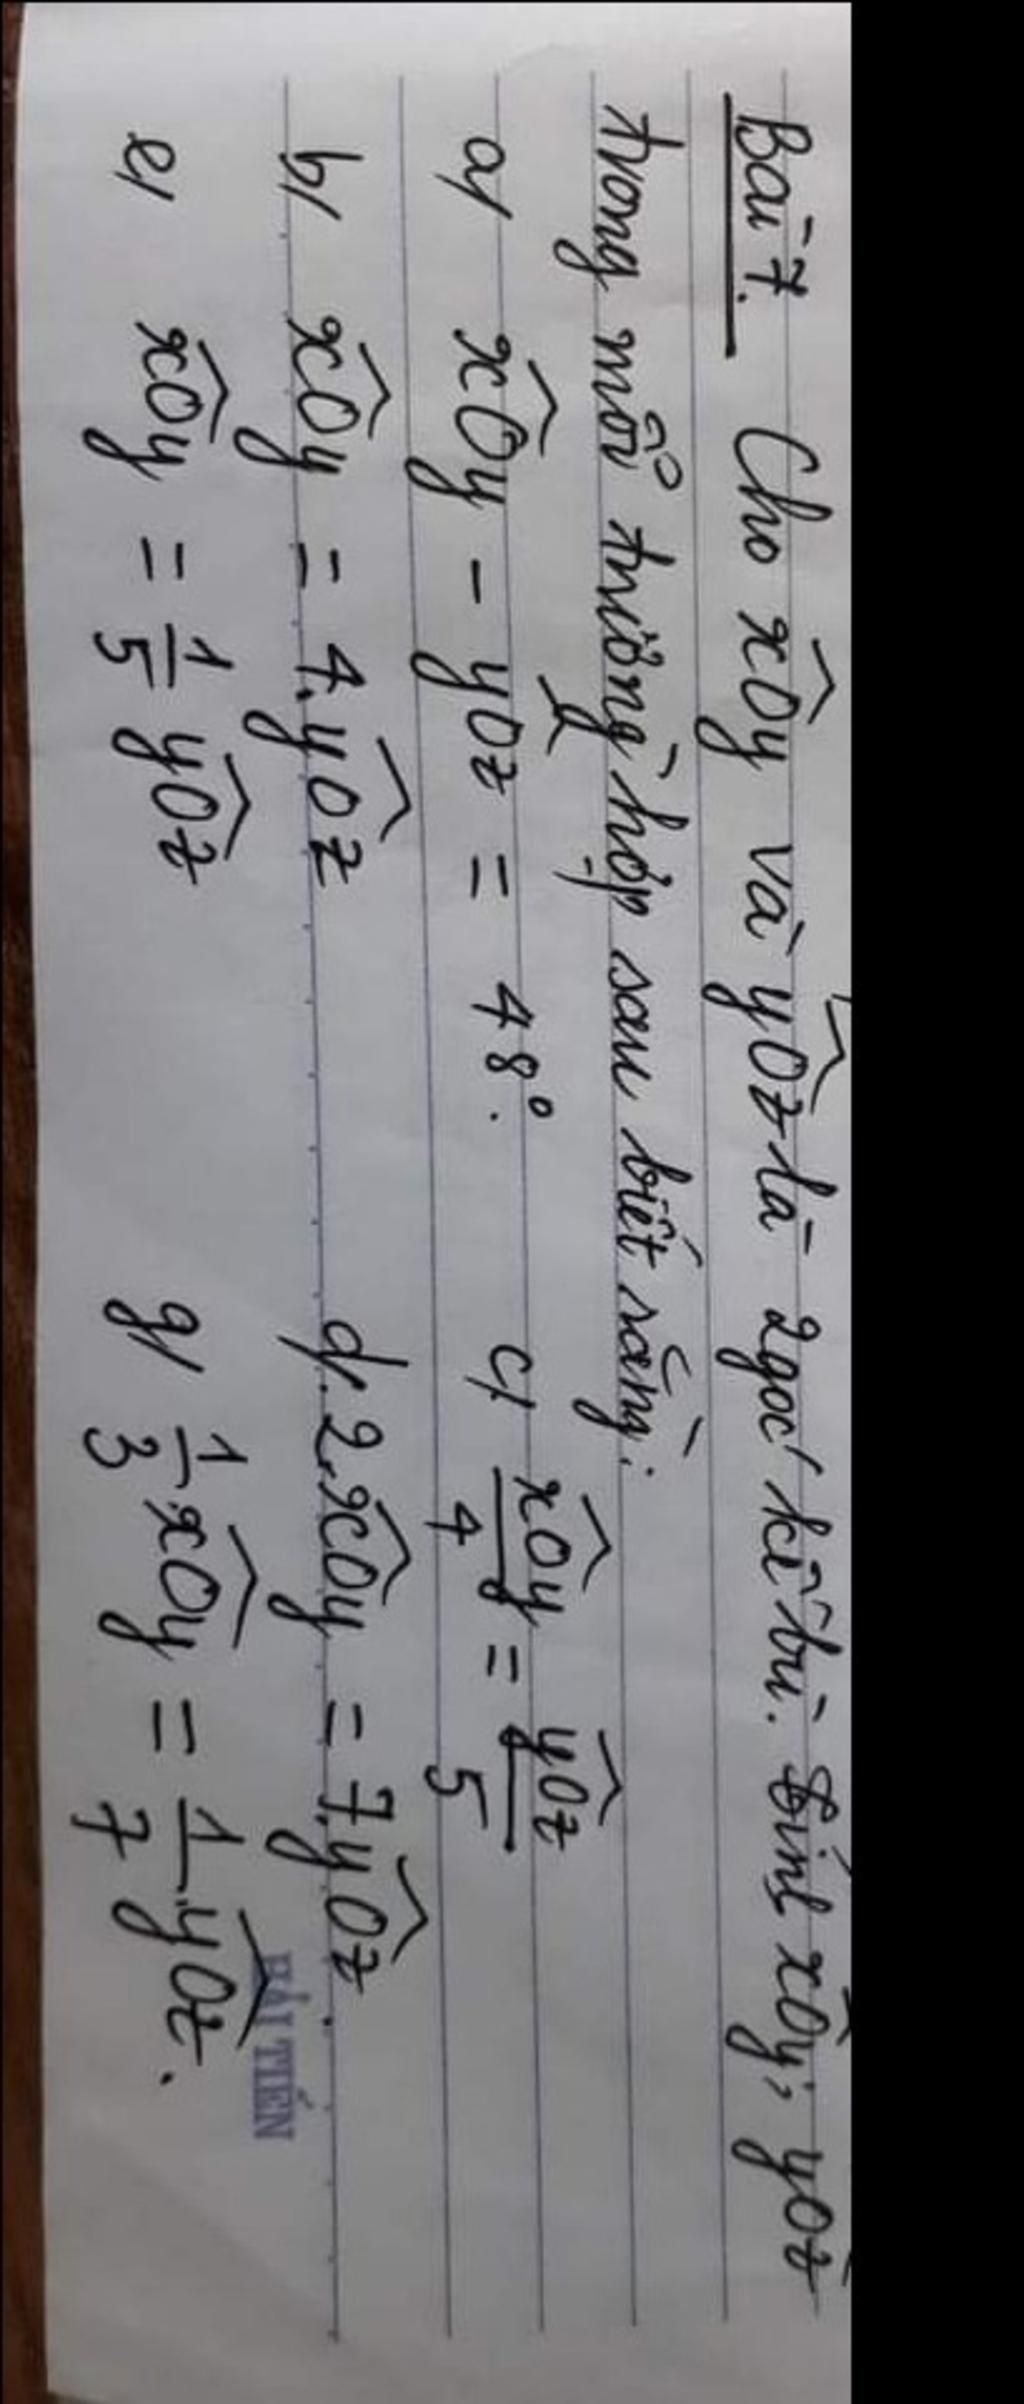 Bài 7. Cho xÔy và yÔz là 2 góc kề bù. Tính xÔy; yÔz
trong mỗi trường hợp sau biết rằng:
a/ xÔy - yÔz = 48°. c/ xÔy/4 = yÔz/5
b/ xÔy = 4.yÔz d/. 2.xÔy = 7.yÔz
e/ xÔy = 1/5 yÔz g/ 1/3.xÔy = 1/7.yÔz.
HẢI TIẾN